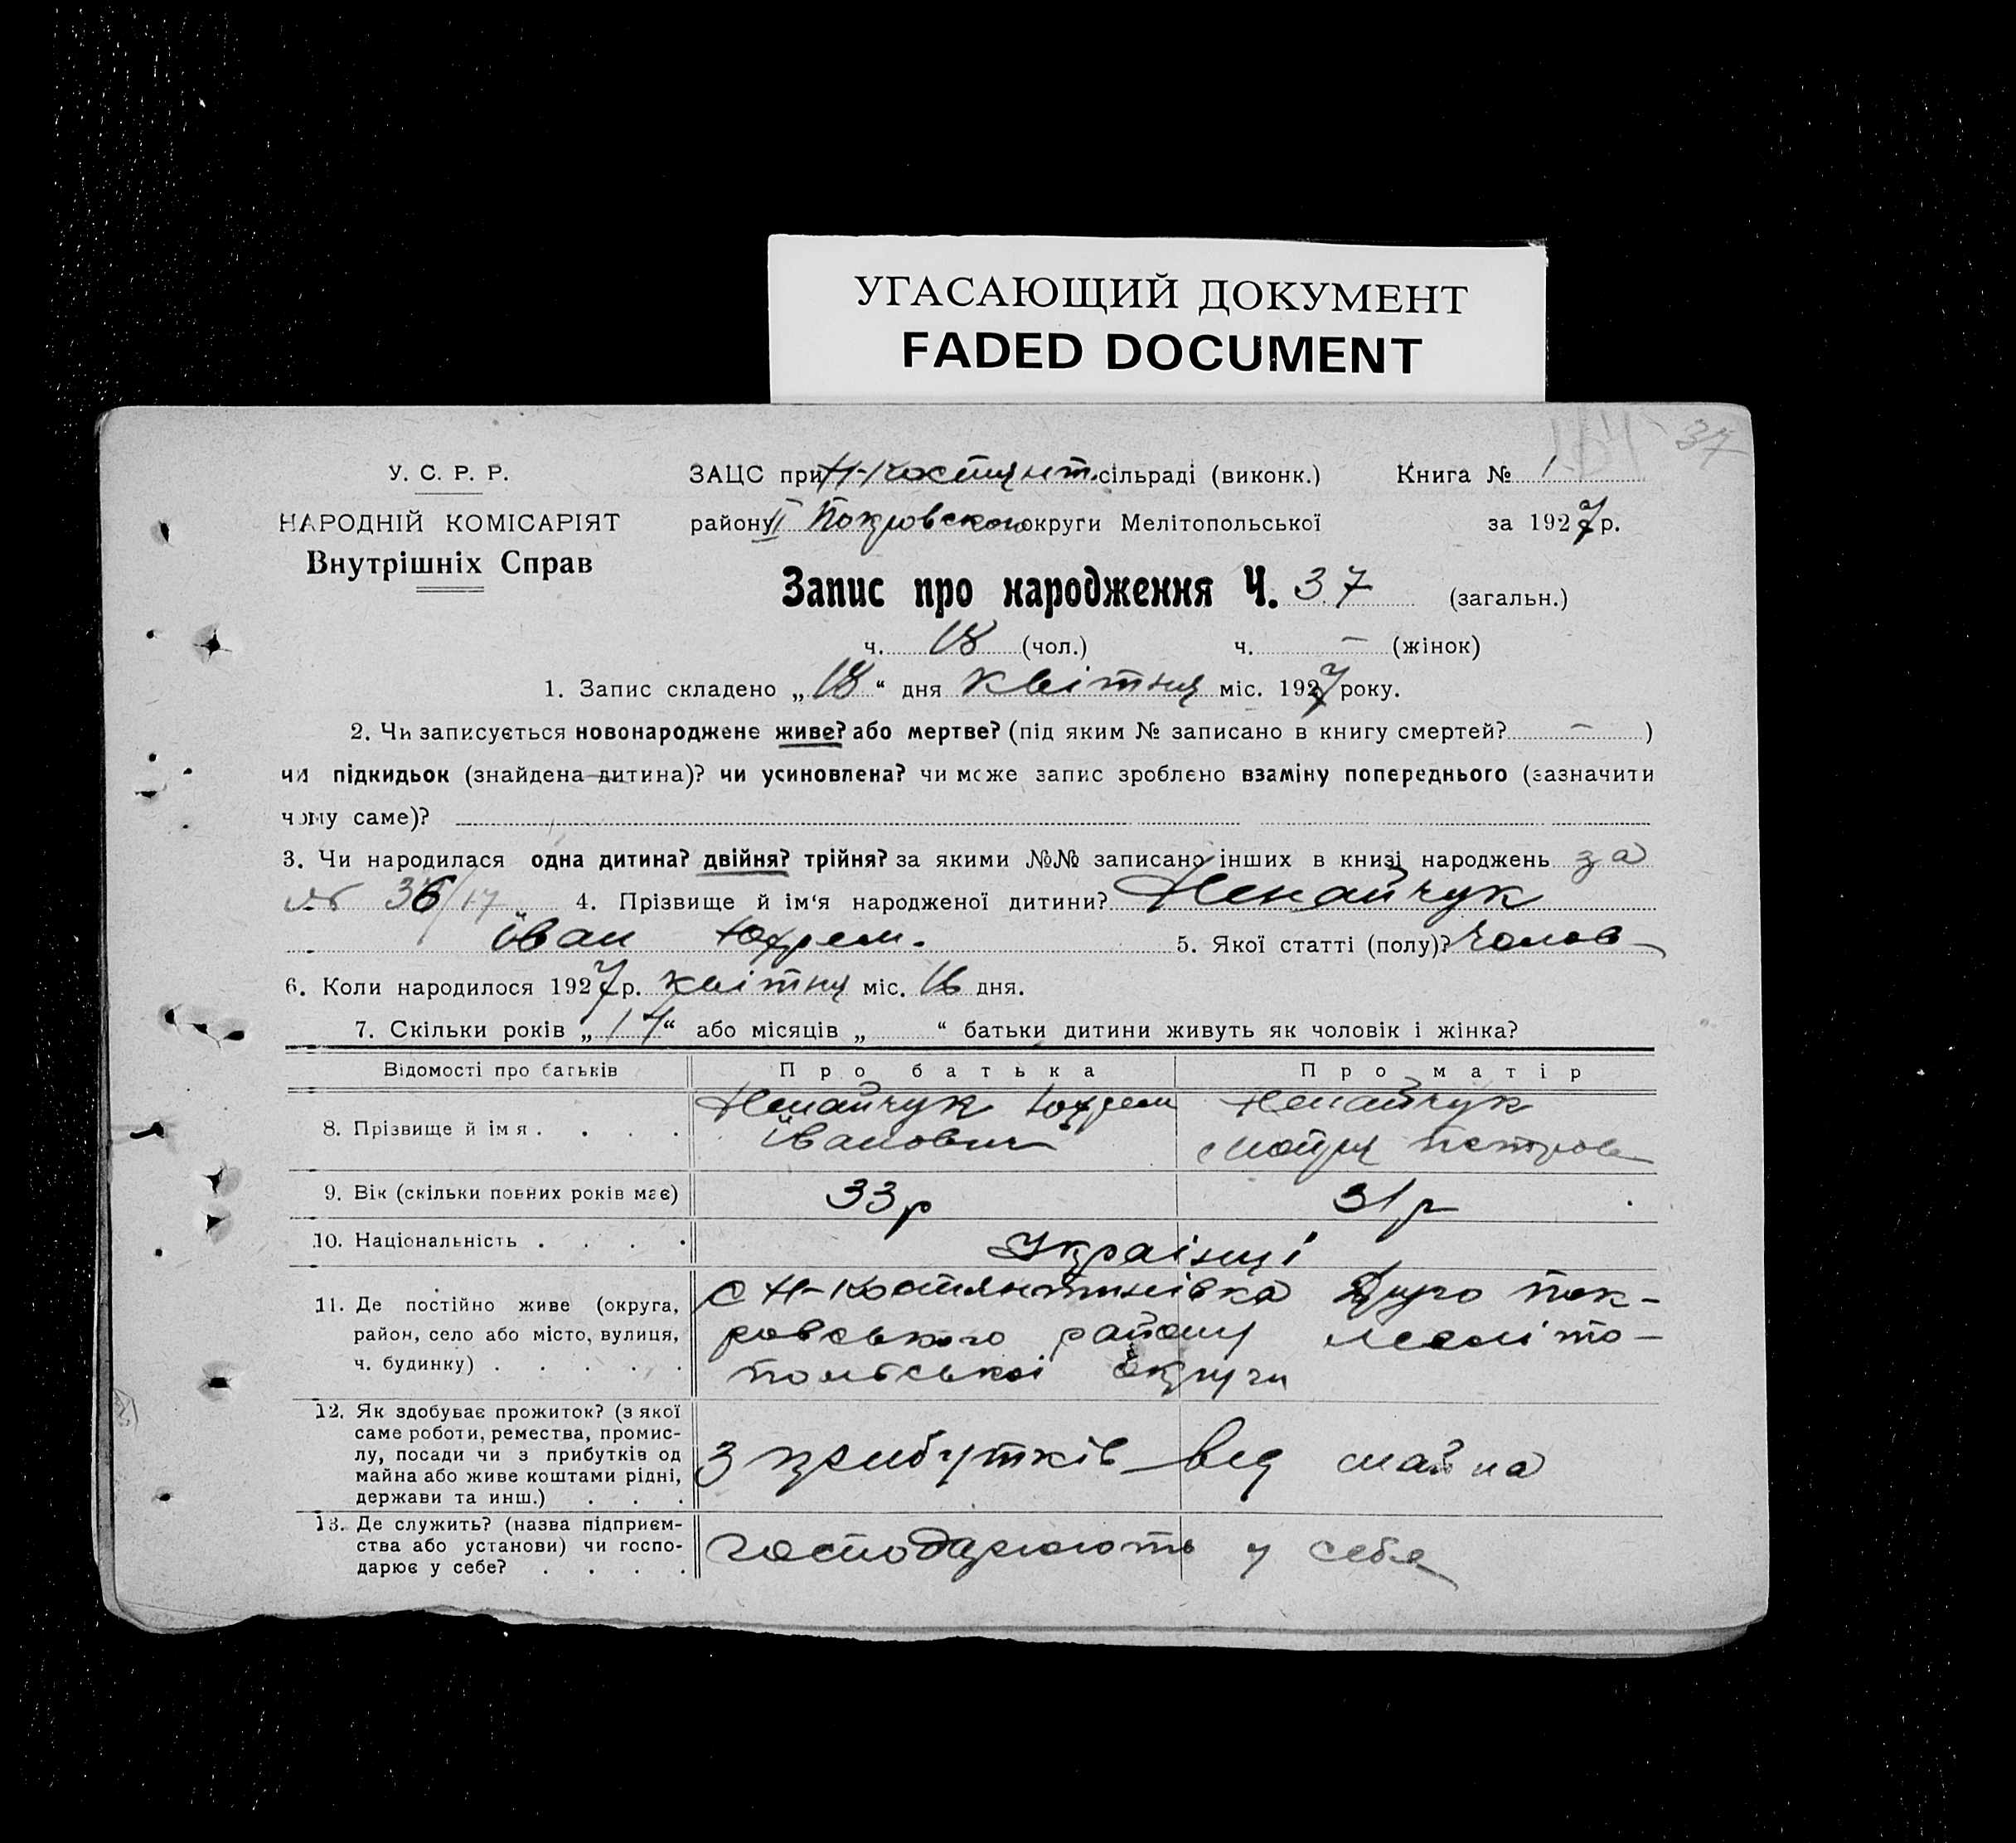 УГАСАЮЩИЙ ДОКУМЕНТ
FADED DOCUMENT
37
У. С. Р. Р.
НАРОДНІЙ КОМІСАРІЯТ
Внутрішніх Справ
ЗАЦС при Н-Костянт. сільраді (виконк.) Книга № 1
району II Покровского округи Мелітопольської за 1927 р.
Запис про народження Ч. 37 (загальн.)
ч. 18 (чол.) ч. – (жінок)
1. Запис складено „18“ дня квітня міс. 1927 року.
2. Чи записується новонароджене живе? або мертве? (під яким № записано в книгу смертей? – )
чи підкидьок (знайдена дитина)? чи усиновлена? чи може запис зроблено взаміну попереднього (зазначити
чому саме)?
3. Чи народилася одна дитина? двійня? трійня? за якими №№ записано інших в книзі народжень за
№ 36/17 4. Прізвище й ім‘я народженої дитини? Ненайчук
Іван Юхрем. 5. Якої статті (полу)? Чолов
6. Коли народилося 1927 р. квітня міс. 16 дня.
7. Скільки років „17“ або місяців „ “ батьки дитини живуть як чоловік і жінка?
Відомості про батьків Про батька Про матір
8. Прізвище й імя . . . . . Ненайчук Юхрем Ненайчук
Іванович Мотря Петров
9. Вік (скільки повних років має) 33р 31р
10. Національність . . . . Українці
11. Де постійно живе (округа, район, село або місто, вулиця, ч. будинку) . . . . . с Н-Костянтинівка Друго Пок-
ровського району Меліто-
польської округи
12. Як здобуває прожиток? (з якої
саме роботи, ремества, промис-
лу, посади чи з прибутків од
майна або живе коштами рідні,
держави та инш.) . . . З прибутків від майна
13. Де служить? (назва підприєм-
ства або установи) чи госпо-
дарює у себе? . . . . господарюють у себе